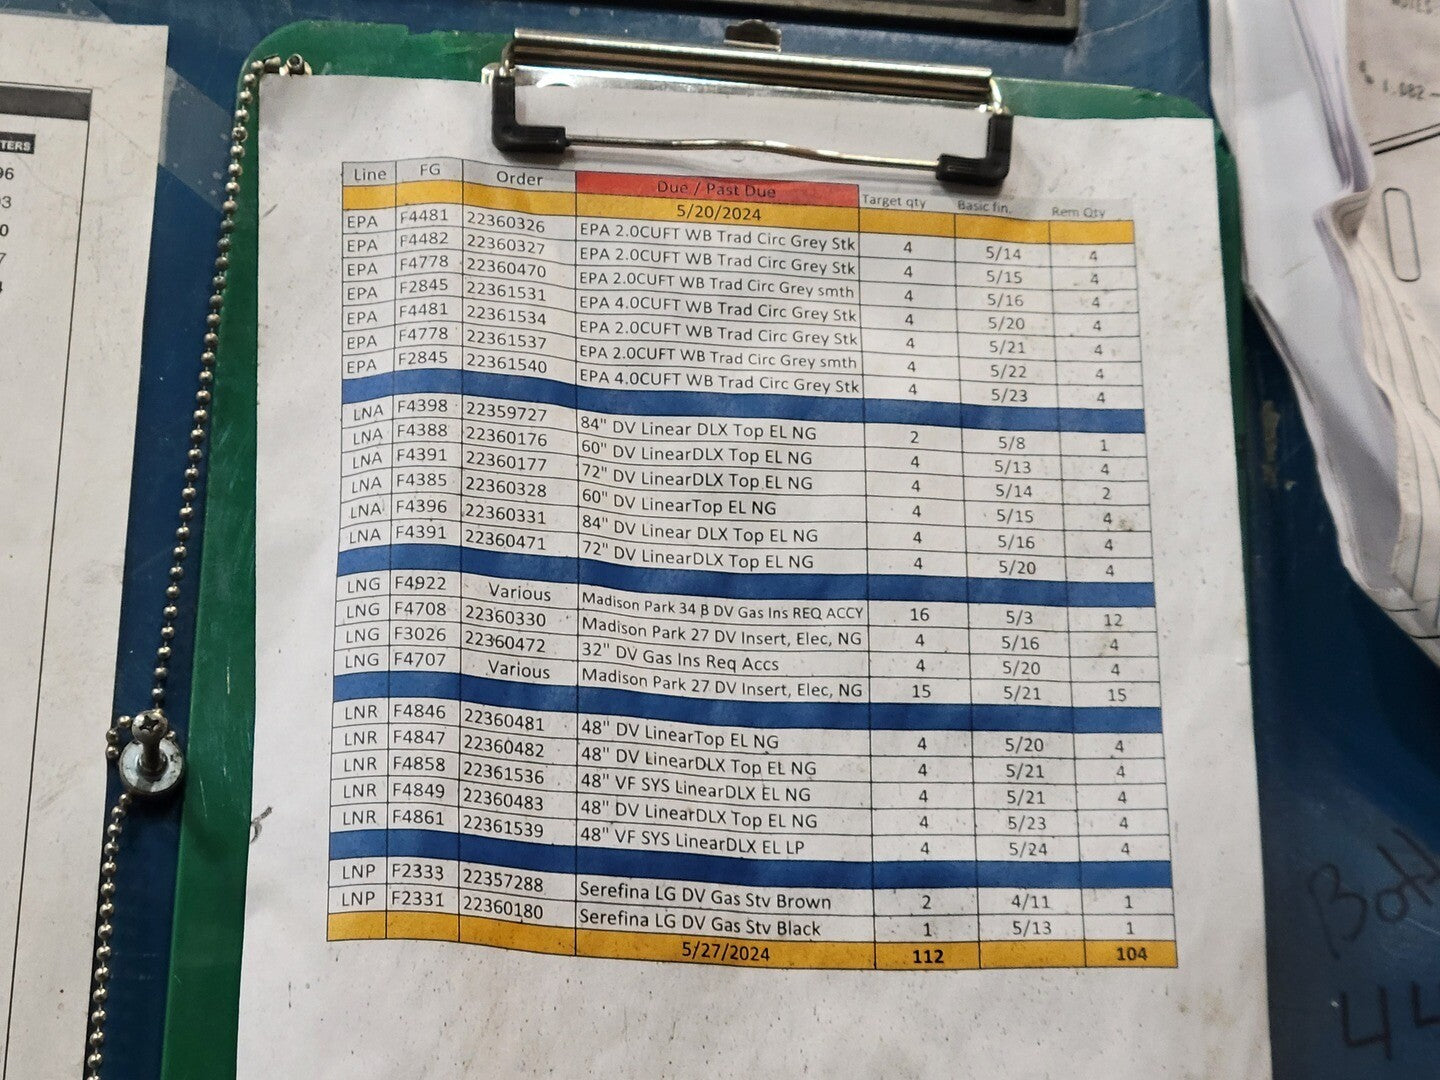 TERS
96
NOTES
1.682
Line FG Order Due / Past Due Target qty Basic fin. Rem Qty
5/20/2024
EPA F4481 22360326 EPA 2.0CUFT WB Trad Circ Grey Stk 4 5/14 4
EPA F4482 22360327 EPA 2.0CUFT WB Trad Circ Grey Stk 4 5/15 4
EPA F4778 22360470 EPA 2.0CUFT WB Trad Circ Grey smth 4 5/16 4
EPA F2845 22361531 EPA 4.0CUFT WB Trad Circ Grey Stk 4 5/20 4
EPA F4481 22361534 EPA 2.0CUFT WB Trad Circ Grey Stk 4 5/21 4
EPA F4778 22361537 EPA 2.0CUFT WB Trad Circ Grey smth 4 5/22 4
EPA F2845 22361540 EPA 4.0CUFT WB Trad Circ Grey Stk 4 5/23 4
LNA F4398 22359727 84" DV Linear DLX Top EL NG 2 5/8 1
LNA F4388 22360176 60" DV LinearDLX Top EL NG 4 5/13 4
LNA F4391 22360177 72" DV LinearDLX Top EL NG 4 5/14 2
LNA F4385 22360328 60" DV LinearTop EL NG 4 5/15 4
LNA F4396 22360331 84" DV Linear DLX Top EL NG 4 5/16 4
LNA F4391 22360471 72" DV LinearDLX Top EL NG 4 5/20 4
LNG F4922 Various Madison Park 34 B DV Gas Ins REQ ACCY 16 5/3 12
LNG F4708 22360330 Madison Park 27 DV Insert, Elec, NG 4 5/16 4
LNG F3026 22360472 32" DV Gas Ins Req Accs 4 5/20 4
LNG F4707 Various Madison Park 27 DV Insert, Elec, NG 15 5/21 15
LNR F4846 22360481 48" DV LinearTop EL NG 4 5/20 4
LNR F4847 22360482 48" DV LinearDLX Top EL NG 4 5/21 4
LNR F4858 22361536 48" VF SYS LinearDLX EL NG 4 5/21 4
LNR F4849 22360483 48" DV LinearDLX Top EL NG 4 5/23 4
LNR F4861 22361539 48" VF SYS LinearDLX EL LP 4 5/24 4
LNP F2333 22357288 Serefina LG DV Gas Stv Brown 2 4/11 1
LNP F2331 22360180 Serefina LG DV Gas Stv Black 1 5/13 1
5/27/2024 112 104